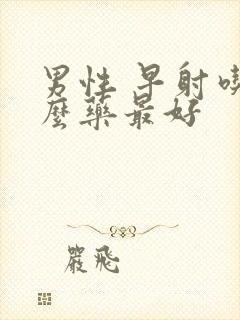 男性 早射
麼藥最好
嚴飛